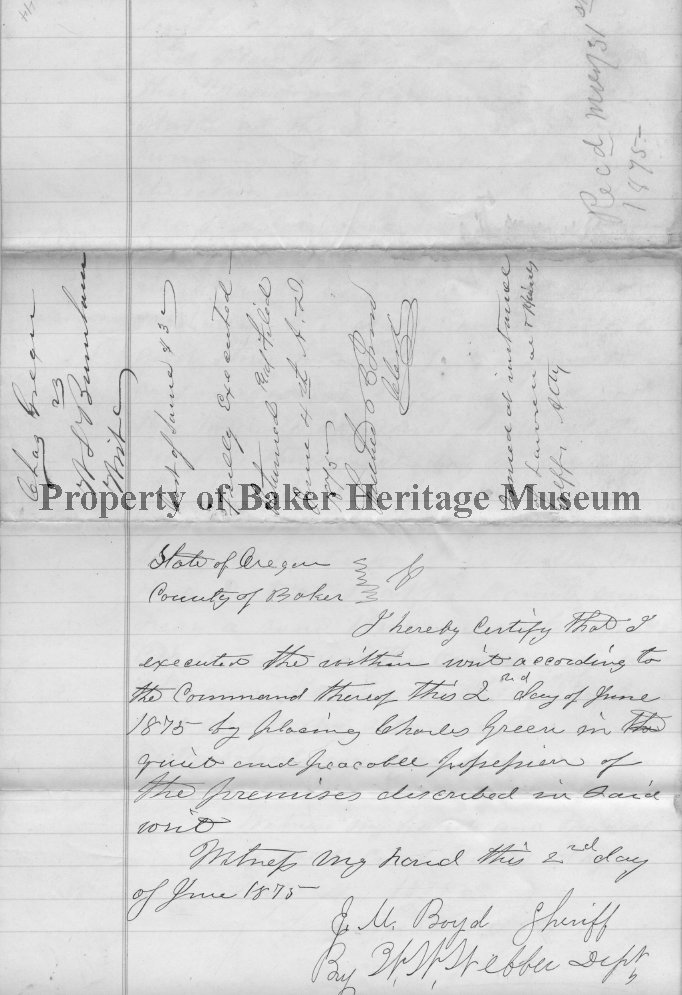 Recd May 31st
1875 –
Chas Green
vs
Burnham
Writ
Writ of Same & 3
Fully Executed –
Returned and Filed
June 4th A.D.
1875
Clerk
Issued at instance
of Lawrence &
Plffs Atty
Property of Baker Heritage Museum
State of Oregon
County of Baker
I hereby certify that I
executed the within writ according to
the Command thereof this 2nd day of June
1875 by placing Charles Green in the
quiet and peacable possession of
the premises discribed in said
writ
Witness my hand this 2nd day
of June 1875
J. M. Boyd Sheriff
By W. W. Webber Dept